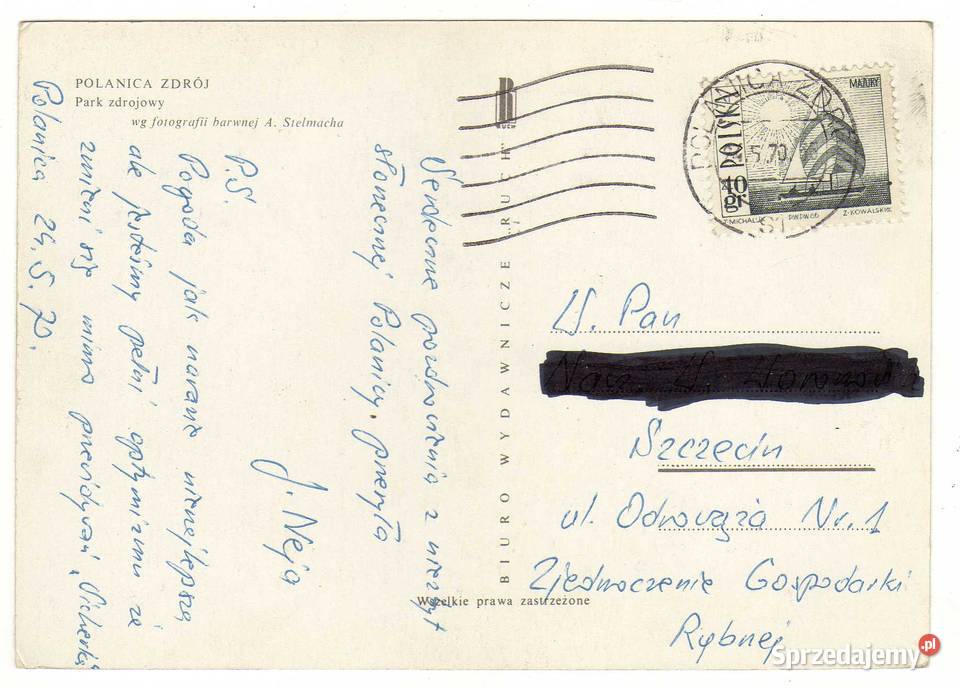 POLANICA ZDRÓJ
Park zdrojowy
wg fotografii barwnej A. Stelmacha
Serdeczne pozdrowienia z niezbyt
słonecznej Polanicy, przesyła
J. Neja
P.S.
Pogoda jak narazie nienajlepszą
ale jesteśmy pełni optymizmu że
zmieni się mimo przewidywań "Wicherka"
Polanica 24.5.70.
RUCH
BIURO WYDAWNICZE „RUCH”
Wszelkie prawa zastrzeżone
POLANICA ZDRÓJ
5.70
POLSKA
MAZURY
40 gr
T. MICHALUK PWPW.66 Z. KOWALSKI
W. Pan
Szczecin
ul. Odrowąża Nr. 1
Zjednoczenie Gospodarki
Rybnej
Sprzedajemy.pl